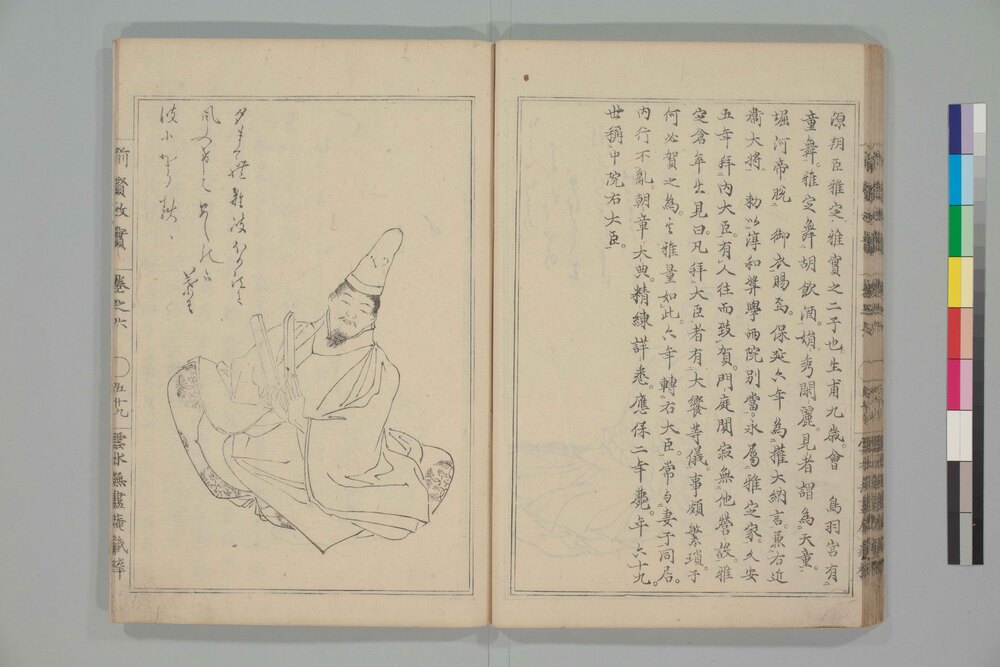 源朝臣雅定、雅實之二子也。生甫九歳。會　鳥羽宮有
童舞。雅定舞胡飲酒。娟秀閑麗、見者謂為天童。
堀河帝脱　御衣賜焉。保延六年為權大納言。兼右近
衞大將。　勅以淳和奬學両院別當、永屬雅定家。久安
五年拜内大臣。有人往而致賀。門庭閴寂無他營設。雅
定倉卒出見曰。凡拜大臣者有大饗等儀。事頗繁瑣。子
何必賀之為。其雅量如此。六年轉右大臣。常与妻子同居。
内行不亂。朝章大典。精練詳悉。應保二年薨。年六十九。
世稱中院右大臣。
前賢故實　巻之六　五十九　雲水無盡庵藏梓